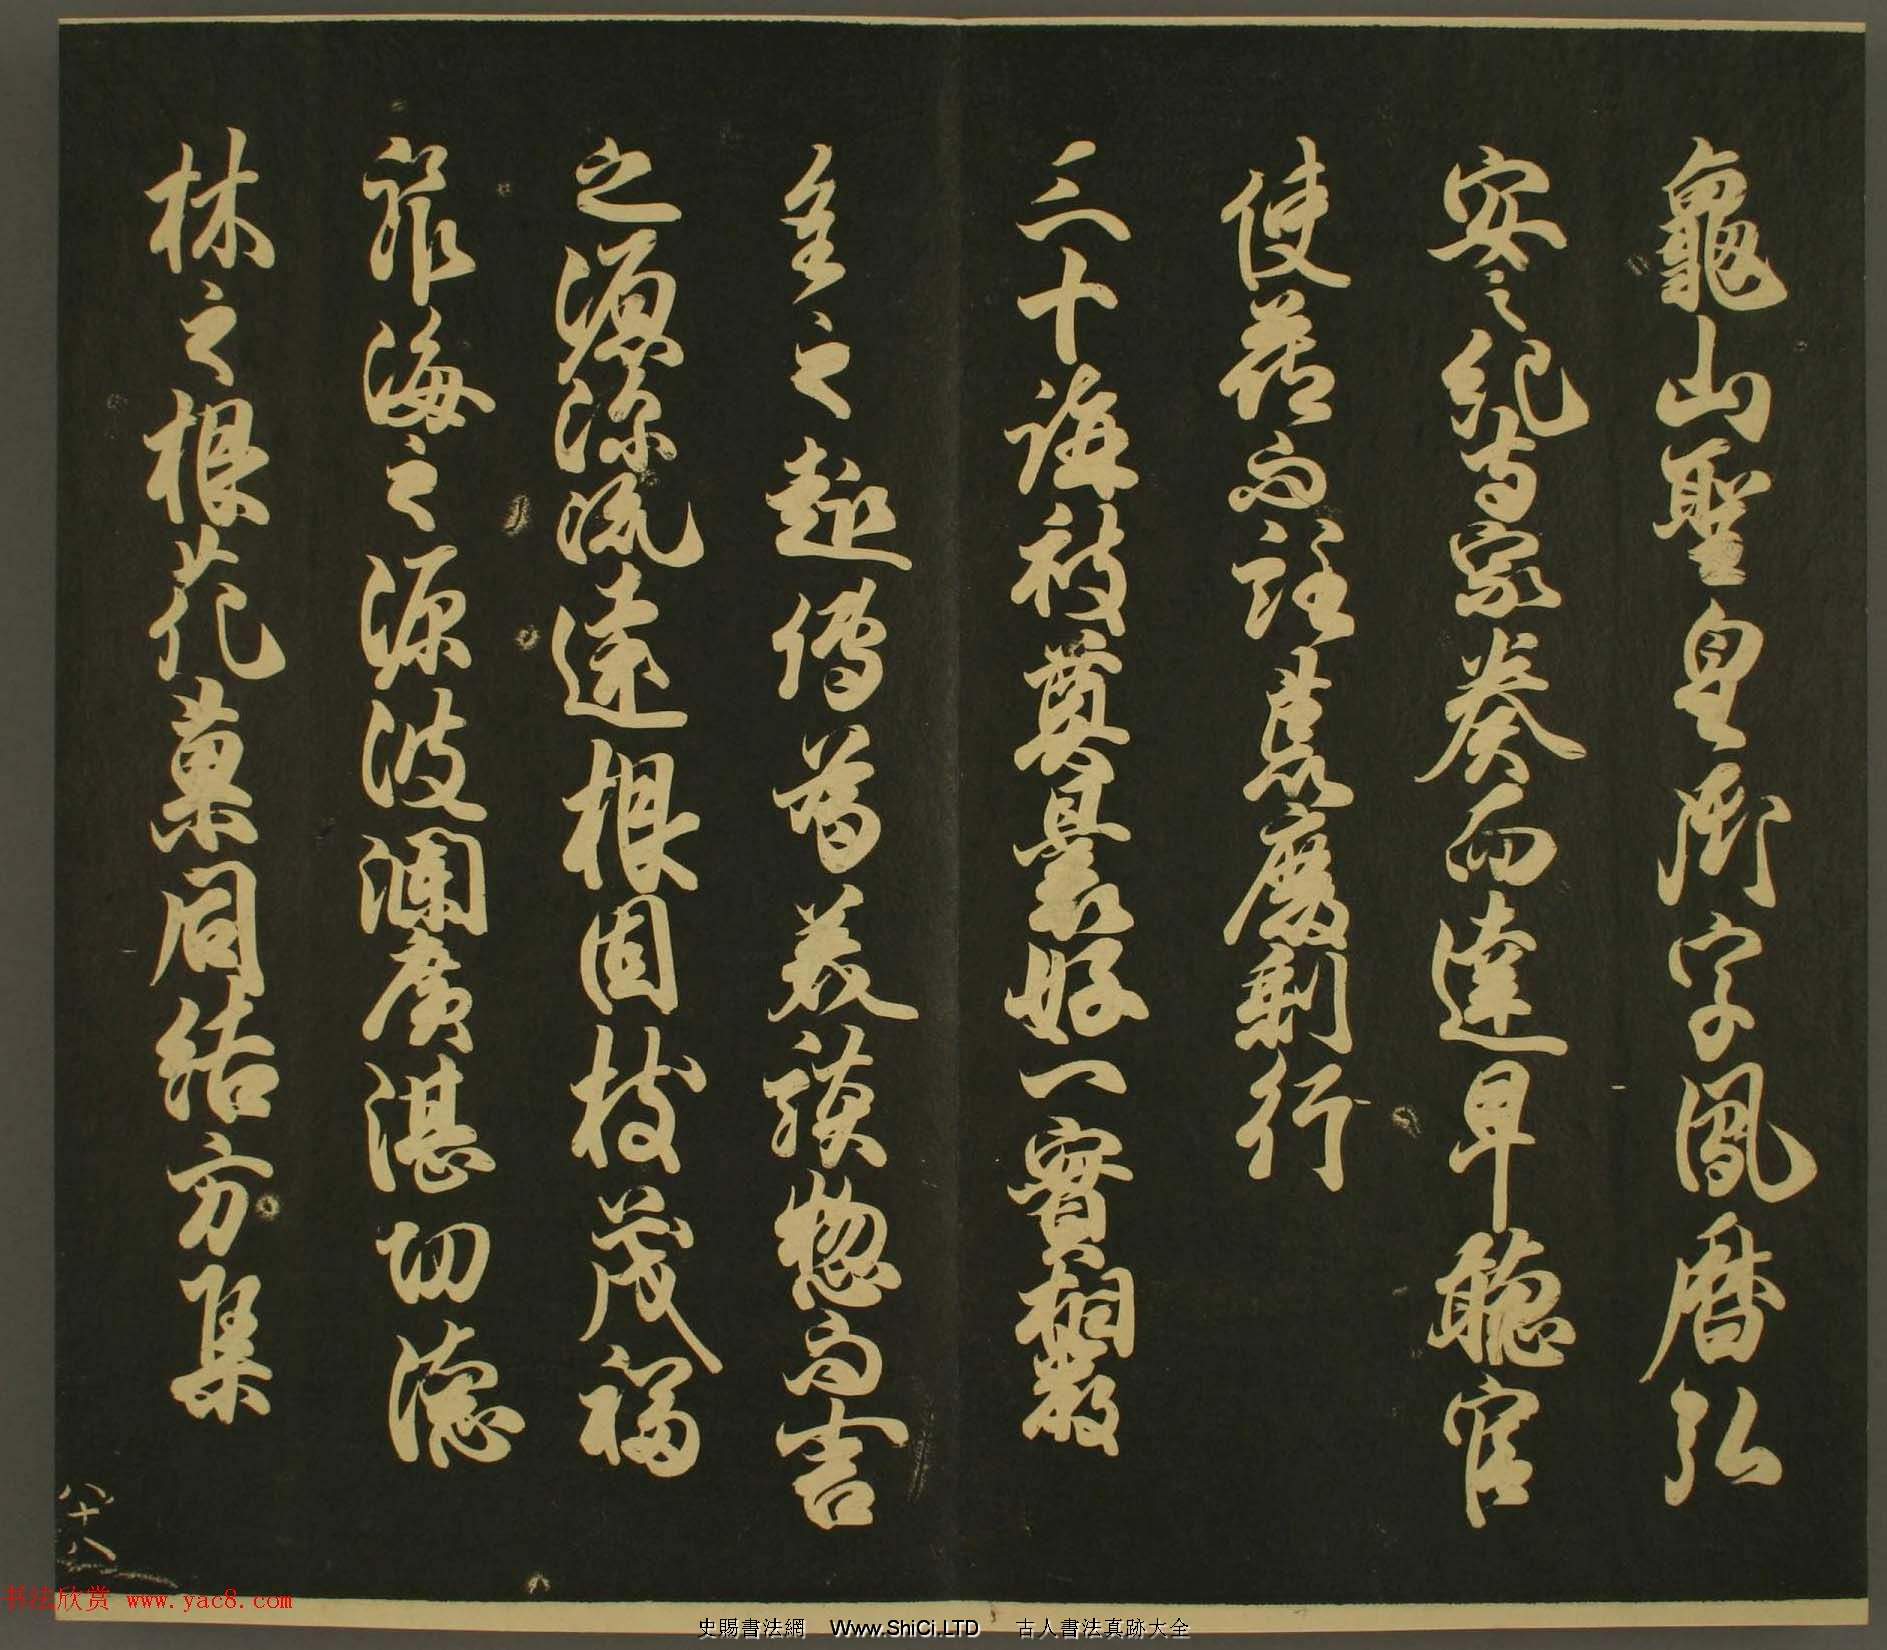 龜山聖皇御字鳳曆弘
安之紀寺家奏而達早聽官
使莅而註荒廢剩行
三十講被奠最好一實桐嚴
金之起傳首義談惣而言
之源深流遠根固枝茂福
聚海之源波瀾廣湛切德
林之根花菓同結方集
八十八
书法欣赏 www.yac8.com
史賜書法網 Www.ShiCi.LTD 古人書法真跡大全